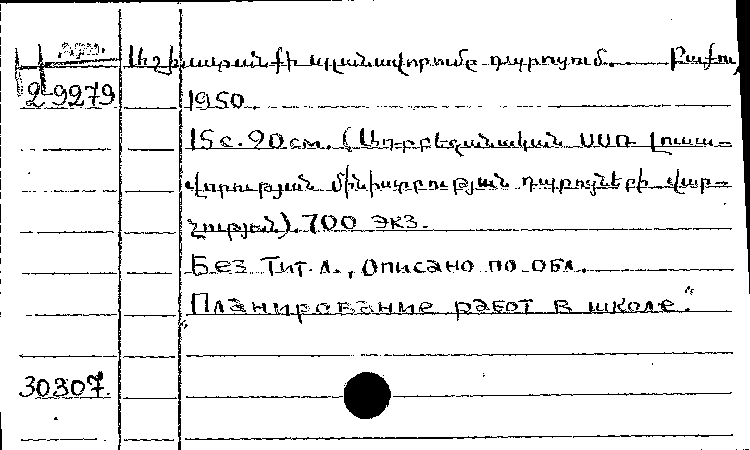 Աշխատանքի պլանավորումը դպրոցում. Բաքու,
29279
1950.
15 с. 20 см. (Ադրբեջանական ՍՍՌ Լուսա-
վորության մինիստրության դպրոցների վար-
չություն). 700 экз.
Без тит. л., описано по обл.
"Планирование работ в школе."
30307.